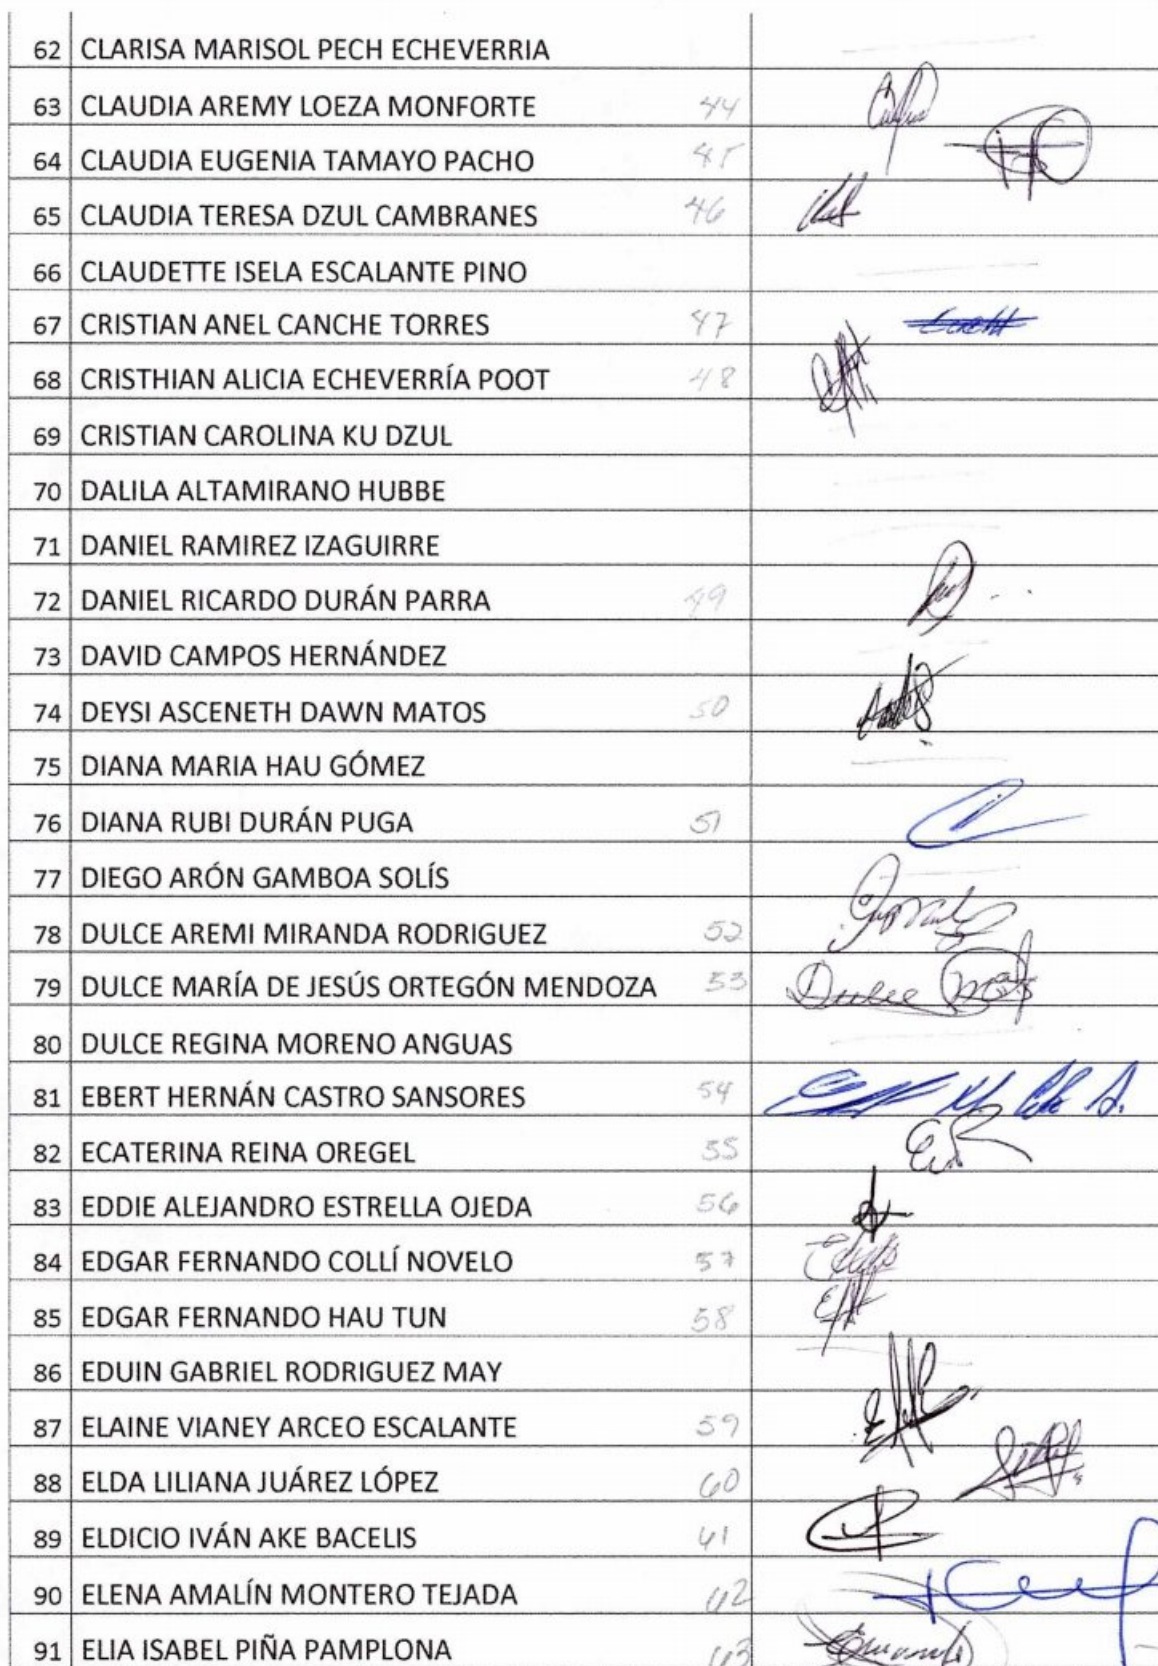 62 CLARISA MARISOL PECH ECHEVERRIA
63 CLAUDIA AREMY LOEZA MONFORTE 44
64 CLAUDIA EUGENIA TAMAYO PACHO 45
65 CLAUDIA TERESA DZUL CAMBRANES 46
66 CLAUDETTE ISELA ESCALANTE PINO
67 CRISTIAN ANEL CANCHE TORRES 47
68 CRISTHIAN ALICIA ECHEVERRÍA POOT 48
69 CRISTIAN CAROLINA KU DZUL
70 DALILA ALTAMIRANO HUBBE
71 DANIEL RAMIREZ IZAGUIRRE
72 DANIEL RICARDO DURÁN PARRA 49
73 DAVID CAMPOS HERNÁNDEZ
74 DEYSI ASCENETH DAWN MATOS 50
75 DIANA MARIA HAU GÓMEZ
76 DIANA RUBI DURÁN PUGA 51
77 DIEGO ARÓN GAMBOA SOLÍS
78 DULCE AREMI MIRANDA RODRIGUEZ 52
79 DULCE MARÍA DE JESÚS ORTEGÓN MENDOZA 53 Dulce
80 DULCE REGINA MORENO ANGUAS
81 EBERT HERNÁN CASTRO SANSORES 54
82 ECATERINA REINA OREGEL 55
83 EDDIE ALEJANDRO ESTRELLA OJEDA 56
84 EDGAR FERNANDO COLLÍ NOVELO 57
85 EDGAR FERNANDO HAU TUN 58
86 EDUIN GABRIEL RODRIGUEZ MAY
87 ELAINE VIANEY ARCEO ESCALANTE 59
88 ELDA LILIANA JUÁREZ LÓPEZ 60
89 ELDICIO IVÁN AKE BACELIS 61
90 ELENA AMALÍN MONTERO TEJADA 62
91 ELIA ISABEL PIÑA PAMPLONA 63